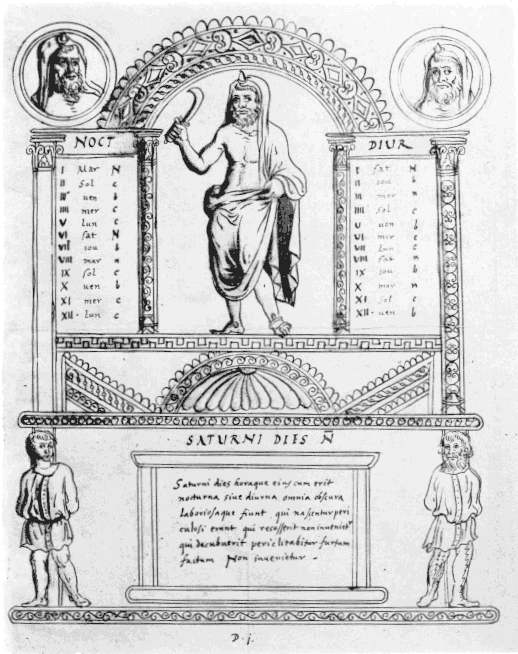 NOCT
I Mar N
II Sol c
III uen b
IIII mer c
V Lun c
VI Sat N
VII iou b
VIII mar n
IX Sol c
X uen b
XI mer c
XII · Lun c
DIUR
I Sat N
II iou b
III mar n
IIII Sol c
V uen b
VI mer c
VII Lun c
VIII Sat n
IX iou b
X mar n
XI Sol c
XII · uen b
· SATURNI DIES N̄
Saturni dies horaque eius cum erit
nocturna siue diurna omnia obscura
laboriosaque fiunt, qui nascentur peri
culosi erunt qui recesserit non inueniet~
qui decubuerit periclitabitur furtum
factum Non inuenietur -
D. j.